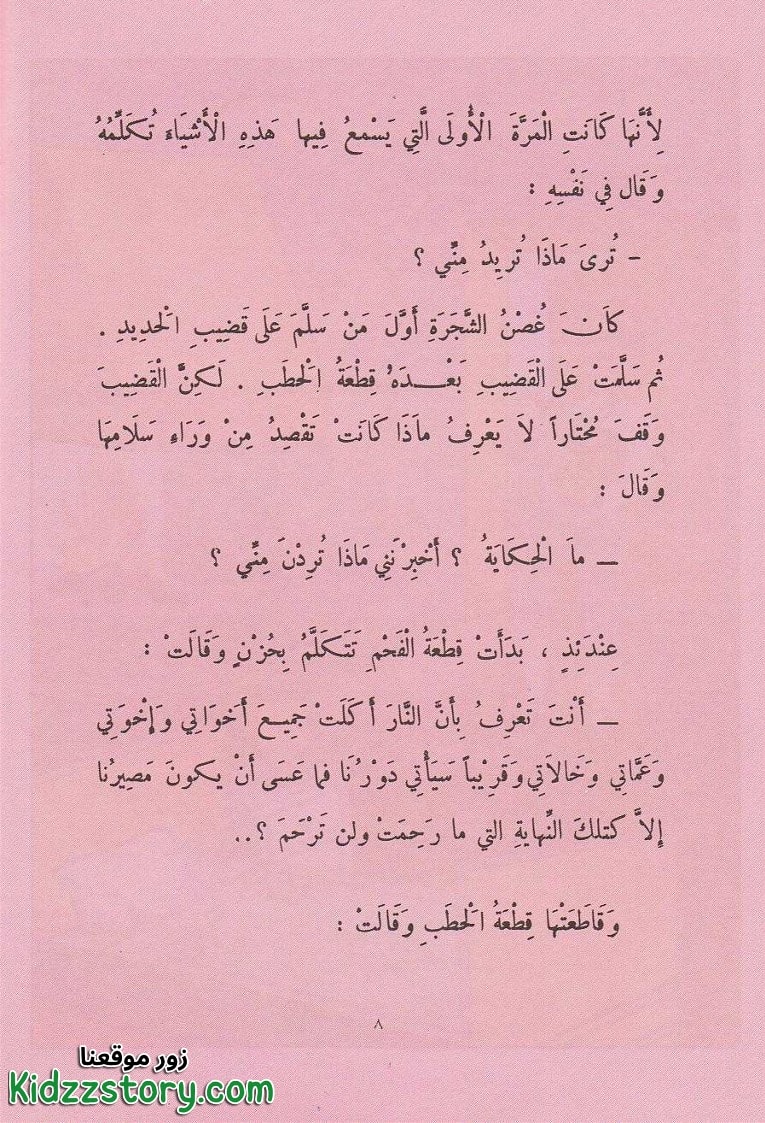 لِأَنَّهَا كَانَتِ الْمَرَّةَ الْأُولَى الَّتِي يَسْمَعُ فِيهَا هَذِهِ الْأَشْيَاءَ تُكَلِّمُهُ
وَقَالَ فِي نَفْسِهِ :
- تُرَى مَاذَا تُرِيدُ مِنِّي ؟
كَانَ غُصْنُ الشَّجَرَةِ أَوَّلَ مَنْ سَلَّمَ عَلَى قَضِيبِ الْحَدِيدِ .
ثُم سَلَّمَتْ عَلَى الْقَضِيبِ بَعْدَهُ قِطْعَةُ الْحَطَبِ . لَكِنَّ الْقَضِيبَ
وَقَفَ مُحْتَاراً لاَ يَعْرِفُ مَاذَا كَانَتْ تَقْصِدُ مِنْ وَرَاءِ سَلَامِهَا
وَقَالَ :
ـ مَا الْحِكَايَةُ ؟ أَخْبِرْنَنِي مَاذَا تُرِدْنَ مِنِّي ؟
عِنْدَئِذٍ ، بَدَأَتْ قِطْعَةُ الْفَحْمِ تَتَكَلَّمُ بِحُزْنٍ وَقَالَتْ :
ـ أَنْتَ تَعْرِفُ بِأَنَّ النَّارَ أَكَلَتْ جَمِيعَ أَخَوَاتِي وَإِخْوَتِي
وَعَمَّاتِي وَخَالاَتِي وَقَرِيباً سَيَأْتِي دَوْرُنَا فما عَسَى أَنْ يكونَ مَصِيرُنا
إِلاَّ كتلكَ النِّهايةِ التي ما رَحِمَتْ ولن تَرْحَمَ ؟..
وَقَاطَعَتْهَا قِطْعَةُ الْحَطَبِ وَقَالَتْ :
٨
زور موقعنا
Kidzzstory.com